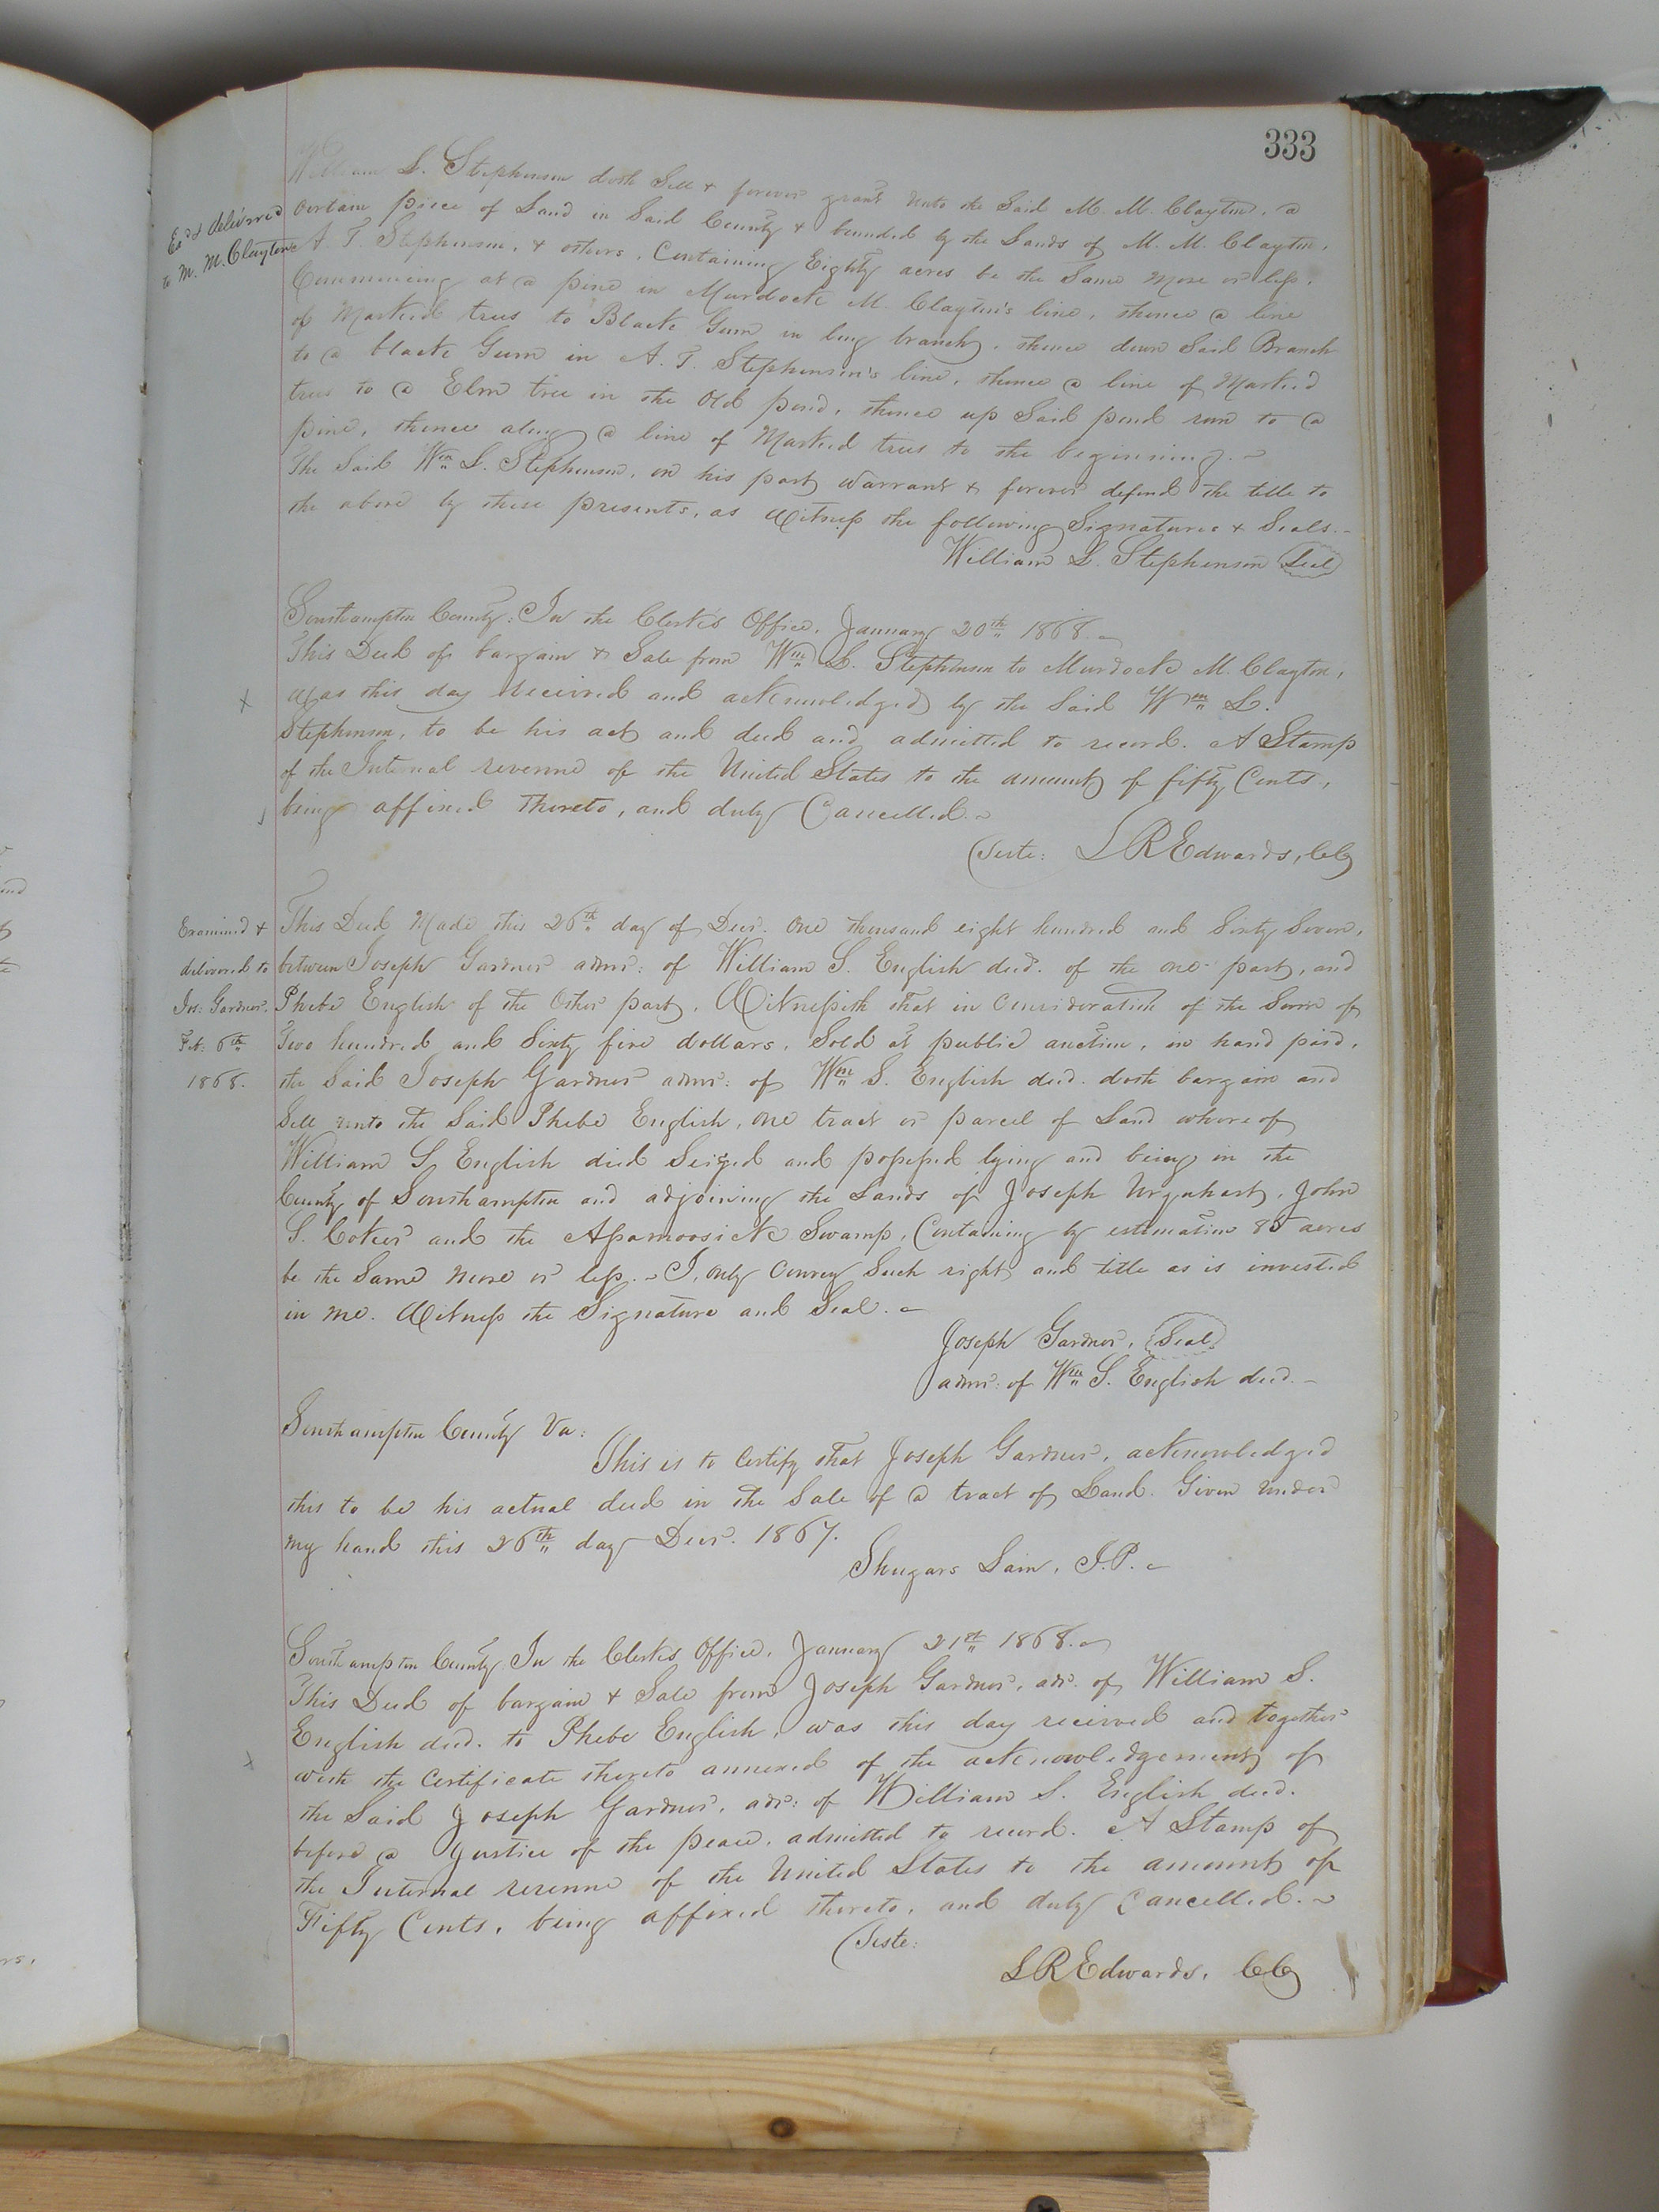 333
William L. Stephenson doth Sell & forever grant unto the Said M. M. Clayton, a
Exd & delivered
to M. M. Clayton
certain piece of Land in Said County & bounded by the Lands of M. M. Clayton,
A. T. Stephenson, & others, Containing Eighty acres be the Same more or less.
Commencing at a pine in Murdock M. Clayton's line, thence a line
of Marked trees to Black Gum in bug branch, thence down Said Branch
to a black Gum in A. T. Stephenson's line, thence a line of Marked
trees to a Elm tree in the Old pond, thence up Said pond run to a
pine, thence along a line of Marked trees to the beginning.
The Said Wm L. Stephenson, on his part warrant & forever defend the title to
the above by these presents, as Witness the following Signatures & Seals.
William L. Stephenson Seal
Southampton County: In the Clerk's Office, January 20th 1868.
This Deed of bargain & Sale from Wm L. Stephenson to Murdock M. Clayton,
was this day received and acknowledged by the Said Wm L.
Stephenson, to be his act and deed and admitted to record. A Stamp
of the Internal revenue of the United States to the amount of fifty Cents,
being affixed thereto, and duly Cancelled.
Teste: L R Edwards, CC
Examined &
delivered to
Jos: Gardner.
Feb: 6th
1868.
This Deed Made this 26th day of Decr. One thousand eight hundred and Sixty Seven,
between Joseph Gardner admr: of William S. English decd. of the one part, and
Phebe English of the Other part, Witnesseth that in Consideration of the Sum of
Two hundred and Sixty five dollars, Sold at public auction, in hand paid,
the Said Joseph Gardner admr: of Wm S. English decd. doth bargain and
Sell unto the Said Phebe English, one tract or parcel of Land whereof
William S English died Seized and possessed lying and being in the
County of Southampton and adjoining the Lands of Joseph Urquhart, John
S. Coker and the Assamoosick Swamp, Containing by estimation 85 acres
be the Same more or less. I, only Convey Such right and title as is invested
in me. Witness the Signature and Seal.
Joseph Gardner, Seal
admr: of Wm S. English decd.
Southampton County Va:
This is to Certify that Joseph Gardner, acknowledged
this to be his actual deed in the Sale of a tract of Land. Given under
my hand this 26th day Decr. 1867.
Shugars Lain, J.P.
Southampton County, In the Clerk's Office, January 21st 1868.
This Deed of bargain & Sale from Joseph Gardner, adr. of William S.
English decd. to Phebe English, was this day received and together
with the Certificate thereto annexed of the acknowledgement of
the Said Joseph Gardner, adr: of William S. English decd.
before a Justice of the peace, admitted to record. A Stamp of
the Internal revenue of the United States to the amount of
Fifty Cents, being affixed thereto, and duly Cancelled.
Teste:
L R Edwards, CC